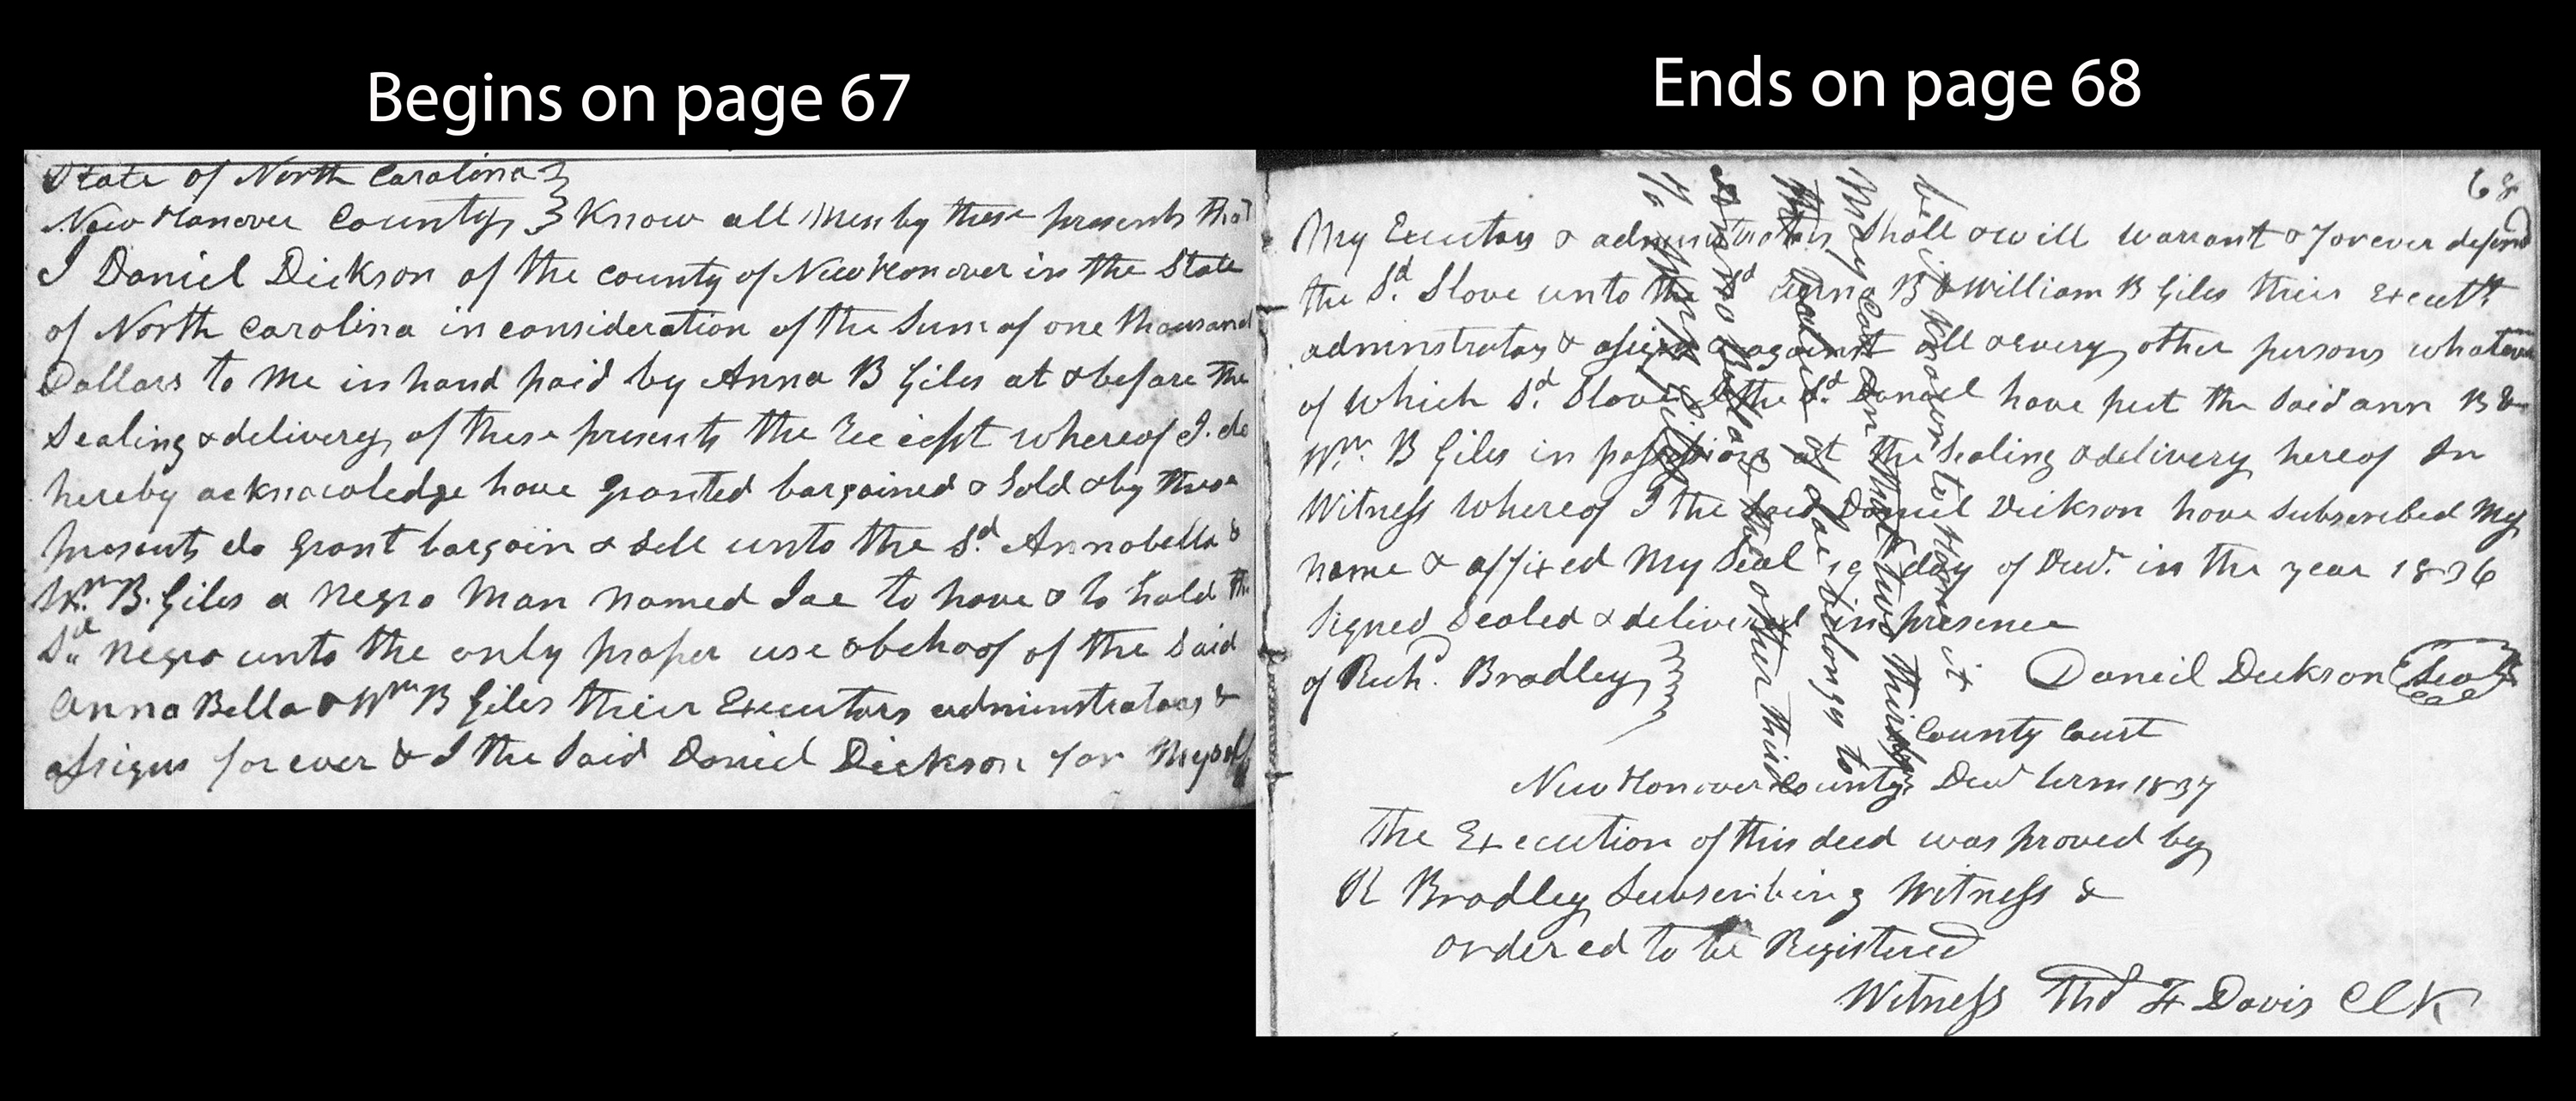 Begins on page 67
State of North Carolina
New Hanover County, Know all Men by these presents that
I Daniel Dickson of the county of New Hanover in the State
of North Carolina in consideration of the Sum of one thousand
Dollars to Me in hand paid by Anna B Giles at & before the
Sealing & delivery of these presents the Receipt whereof I do
hereby acknowledge have granted bargained & Sold & by these
presents do grant bargain & Sell unto the Sd. Annabella &
Wm. B. Giles a Negro Man Named Joe to have & to hold the
Sd. Negro unto the only proper use & behoof of the Said
Anna Bella & Wm B Giles their Executors adminstrators &
assigns for ever & I the Said Daniel Dickson for Myself
Ends on page 68
68
My Executors & adminstrators Shall & will warrant & forever defend
the Sd. Slave unto the Sd Anna B & William B Giles their Executrs
adminstrators & assigns & against all & every other persons whatever
of which Sd. Slave I the Sd. Daniel have put the Said ann B &
Wm. B Giles in possession at the Sealing & delivery hereof In
Witness whereof I the Said Daniel Dickson have Subscribed My
name & affixed My Seal 19 day of Decr. in the year 1836
Signed Sealed & delivered in presence
of Richd. Bradley
Daniel Dickson Seal
be it known to Whom it
May concern that two thirds
the value of Joe belongs to
Anna Bella & the other third
to Wm B Giles
County Court
New Hanover County, Decr term 1837
The Execution of this deed was proved by
R Bradley Subscribing Witness &
ordered to be Registered
Witness Thos F Davis Clk